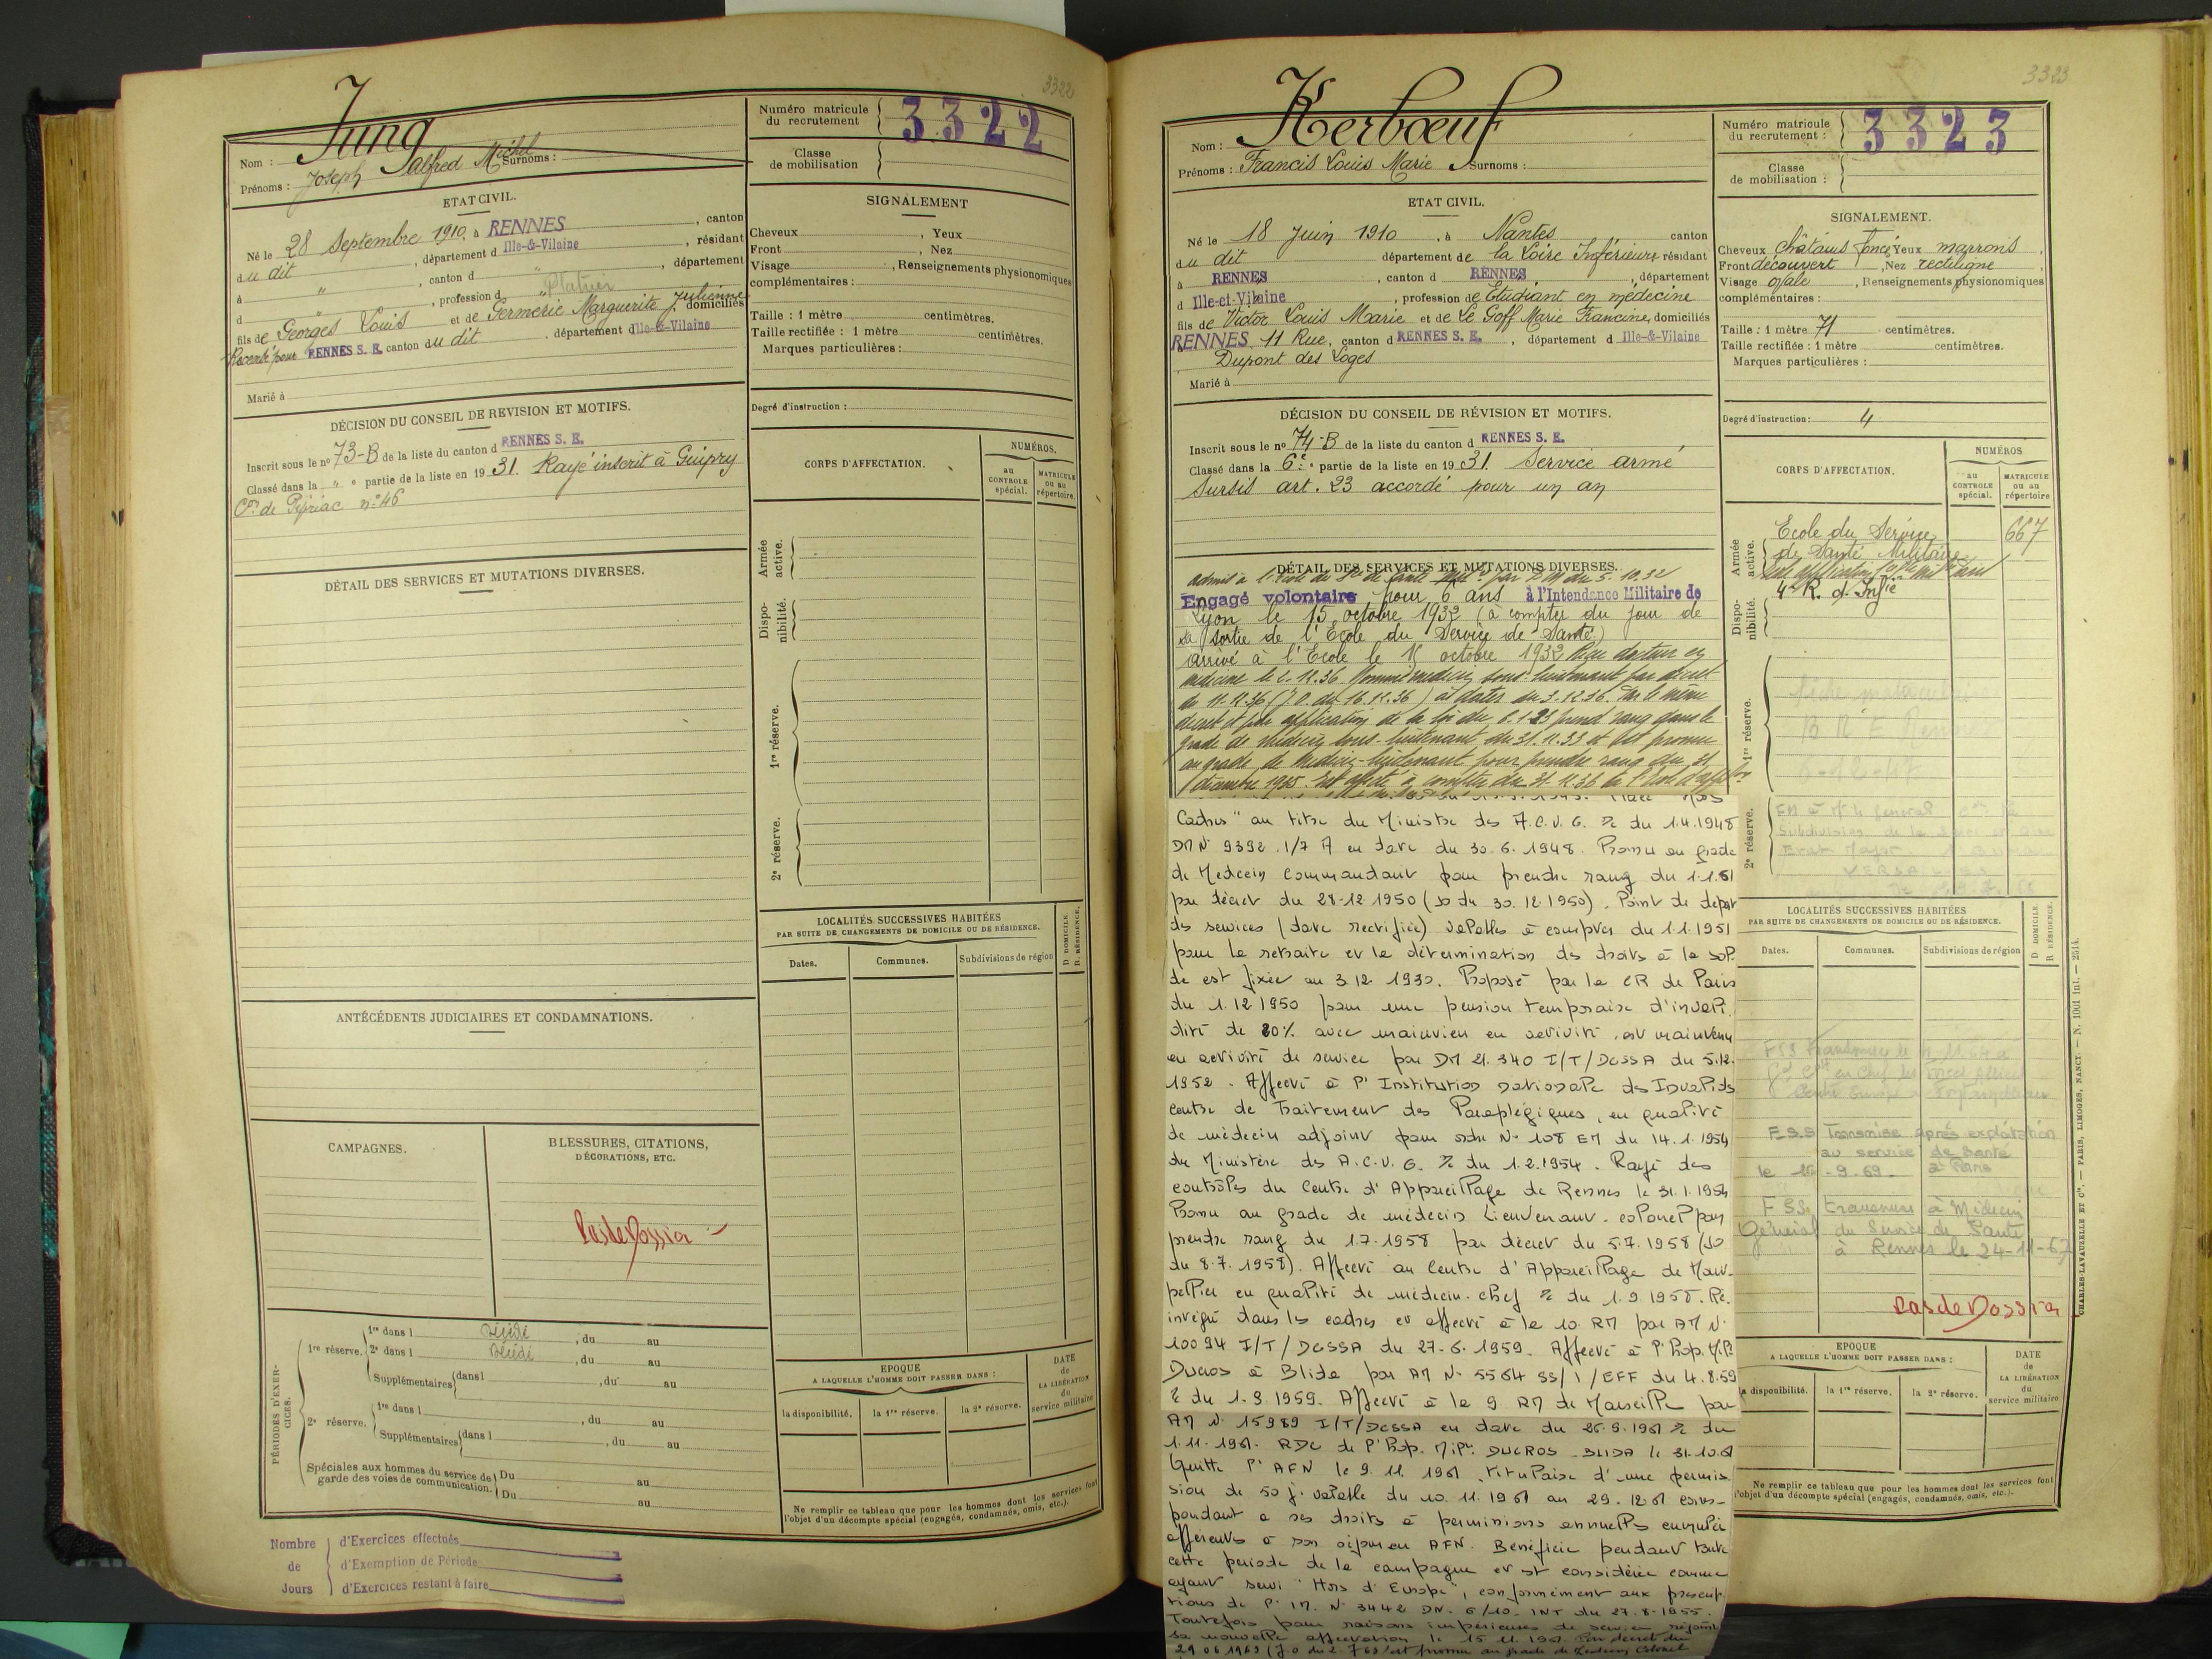 3322
Jung
Nom :
Surnoms :
Prénoms : Joseph Alfred Michel
Numéro matricule du recrutement 3322
Classe de mobilisation
ETAT CIVIL.
Né le 28 Septembre 1910, à RENNES, canton
du dit, département d Ille-&-Vilaine, résidant
à ", canton d ", département
d, profession d Platrier
fils de Georges Louis et de Germerie Marguerite Julienne domiciliés
RENNES S. E. canton du dit, département d Ille-&-Vilaine
Marié à
SIGNALEMENT
Cheveux, Yeux
Front, Nez
Visage, Renseignements physionomiques
complémentaires :
Taille : 1 mètre centimètres.
Taille rectifiée : 1 mètre centimètres.
Marques particulières :
Degré d'instruction :
DÉCISION DU CONSEIL DE REVISION ET MOTIFS.
Inscrit sous le nº 73-B de la liste du canton d RENNES S. E.
Classé dans la " e partie de la liste en 1931. Rayé inscrit à Guipry
Con de Pipriac nº 46
DÉTAIL DES SERVICES ET MUTATIONS DIVERSES.
CORPS D'AFFECTATION.
NUMÉROS.
au CONTROLE spécial.
MATRICULE ou au répertoire.
Armée active.
Disponibilité.
1re réserve.
2e réserve.
LOCALITÉS SUCCESSIVES HABITÉES
PAR SUITE DE CHANGEMENTS DE DOMICILE OU DE RÉSIDENCE.
D. DOMICILE.
R. RÉSIDENCE.
Dates.
Communes.
Subdivisions de région
ANTÉCÉDENTS JUDICIAIRES ET CONDAMNATIONS.
CAMPAGNES.
BLESSURES, CITATIONS, DÉCORATIONS, ETC.
Pas de Dossier
PÉRIODES D'EXERCICES.
1re réserve.
1re dans l Décédé, du au
2e dans l Décédé, du au
Supplémentaires dans l, du au
2e réserve.
1re dans l, du au
Supplémentaires dans l, du au
Spéciales aux hommes du service de garde des voies de communication.
Du au
Du au
EPOQUE
A LAQUELLE L'HOMME DOIT PASSER DANS :
la disponibilité.
la 1re réserve.
la 2e réserve.
DATE de LA LIBÉRATION du service militaire
Ne remplir ce tableau que pour les hommes dont les services font
l'objet d'un décompte spécial (engagés, condamnés, omis, etc.).
Nombre de Jours
d'Exercices effectués
d'Exemption de Période
d'Exercices restant à faire
3323
Kerbœuf
Nom :
Prénoms : Francis Louis Marie Surnoms :
Numéro matricule du recrutement : 3323
Classe de mobilisation :
ETAT CIVIL.
Né le 18 Juin 1910, à Nantes canton
du dit département de la Loire Inférieure résidant
à RENNES, canton d RENNES, département
d Ille-et-Vilaine, profession de Etudiant en médecine
fils de Victor Louis Marie et de Le Goff Marie Francine, domiciliés
RENNES 11 Rue, canton d RENNES S. E., département d Ille-&-Vilaine
Dupont des Loges
Marié à
SIGNALEMENT.
Cheveux châtains foncé Yeux marrons
Front découvert, Nez rectiligne
Visage ovale, Renseignements physionomiques
complémentaires :
Taille : 1 mètre 71 centimètres.
Taille rectifiée : 1 mètre centimètres.
Marques particulières :
Degré d'instruction : 4
DÉCISION DU CONSEIL DE RÉVISION ET MOTIFS.
Inscrit sous le nº 74-B de la liste du canton d RENNES S. E.
Classé dans la 6e partie de la liste en 1931. Service armé
Sursis art. 23 accordé pour un an
DÉTAIL DES SERVICES ET MUTATIONS DIVERSES.
admis à l'Ecole du Sce de Santé Mil. par DM du 5.10.32
Engagé volontaire pour 6 ans à l'Intendance Militaire de
Lyon le 15 octobre 1932 (à compter du jour de
sa sortie de l'Ecole du Service de Santé)
arrivé à l'Ecole le 15 octobre 1932 Reçu docteur en
médecine le 2.12.36. Nommé médecin sous-lieutenant par décret
du 11.11.36 (J.O. du 16.11.36) à dater du 3.12.36. Par le même
décret et par application de la loi du 6.1.23 prend rang dans le
grade de médecin sous-lieutenant du 31.12.33 et est promu
au grade de médecin-lieutenant pour prendre rang du 31
décembre 1935. Est affecté à compter du 31.12.36 à l'Ecole d'applon
Cadres" au titre du Ministre des A.C.V.G. % du 1.4.1948
DM N° 9392.1/7 A en date du 30.6.1948. Promu au grade
de Medecin Commandant pour prendre rang du 1.1.51
par décret du 28-12 1950 (JO du 30.12.1950). Point de départ
des services (date rectifiée) valables à compter du 1.1.1951
pour la retraite et la détermination des droits à la sol
de est fixée au 3.12.1930. Proposé par la CR de Paris
du 1.12.1950 pour une pension temporaire d'invali
dité de 80% avec maintien en activité, est maintenu
en activité de service par DM 21.340 I/T/DCSSA du 5.12.
1952. Affecté à l'Institution nationale des Invalides
centre de Traitement des Paraplégiques, en qualité
de médecin adjoint par ordre N° 108 EM du 14.1.1954
du Ministère des A.C.V.G. % du 1.2.1954. Rayé des
contrôles du Centre d'Appareillage de Rennes le 31.1.1954
Promu au grade de médecin Lieutenant-colonel pour
prendre rang du 1.7.1958 par décret du 5.7.1958 (JO
du 8.7.1958). Affecté au Centre d'Appareillage de Mont-
pellier en qualité de médecin-chef % du 1.9.1958. Ré-
intégré dans les cadres et affecté à la 10 RM par AM N°
10094 I/T/DCSSA du 27.6.1959. Affecté à l'Hop. Mil.
Ducros à Blida par AM N° 5564 SS/1/EFF du 4.8.59
% du 1.9.1959. Affecté à la 9 RM de Marseille par
AM N° 15989 I/T/DCSSA en date du 26.9.1961 % du
1.11.1961. RDC de l'Hop. Mil. DUCROS BLIDA le 31.10.61
Quitte l'AFN le 9.11.1961, titulaire d'une permis
sion de 50 j. valable du 10.11.1961 au 29.12.61 corres-
pondant à ses droits à permissions annuelles cumulées
afférentes à son séjour en AFN. Bénéficie pendant toute
cette période de la campagne et est considérée comme
ayant servi "Hors d'Europe", conformément aux prescrip
tions de l'IM. N° 3442 DN. 6/10. INT du 27.8.1955.
Toutefois pour raisons impérieuses de service rejoint
sa nouvelle affectation le 15.11.1961. Par décret du
29 06 1963 (JO du 2.7.63) est promu au grade de Médecin Colonel
CORPS D'AFFECTATION.
NUMÉROS
au CONTROLE spécial.
MATRICULE ou au répertoire
Armée active.
Ecole du Service 667
de Santé Militaire
4e R. d'Infie
Disponibilité.
1re réserve.
2e réserve.
LOCALITÉS SUCCESSIVES HABITÉES
PAR SUITE DE CHANGEMENTS DE DOMICILE OU DE RÉSIDENCE.
D DOMICILE.
R RÉSIDENCE.
Dates.
Communes.
Subdivisions de région
FSS Transmise après exploitation
au service de Santé
le -9.69. à Paris
FSS transmise à Médecin
Général du Service de Santé
à Rennes le 24-11-67
Pas de Dossier
EPOQUE
A LAQUELLE L'HOMME DOIT PASSER DANS :
la disponibilité.
la 1re réserve.
la 2e réserve.
DATE de LA LIBÉRATION du service militaire
Ne remplir ce tableau que pour les hommes dont les services font
l'objet d'un décompte spécial (engagés, condamnés, omis, etc.).
CHARLES-LAVAUZELLE ET Cie. — PARIS, LIMOGES, NANCY. — N. 1001 Int. — 2514.